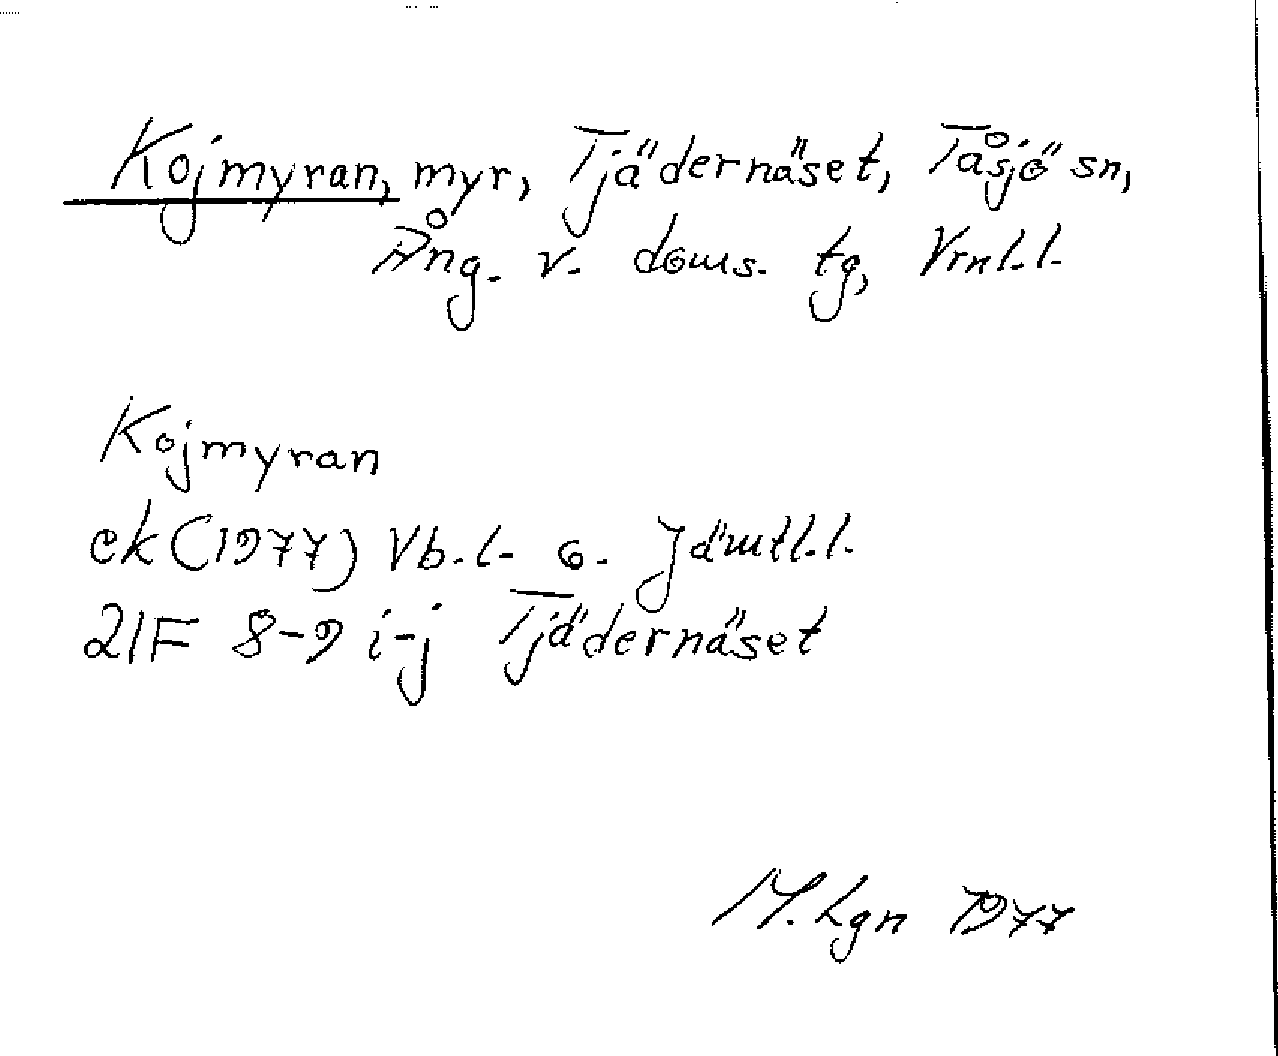 Kojmyran, myr, Tjädernäset, Tåsjö sn,
Ång. v. doms. tg, Vrnl.l.
Kojmyran
ek (1977) Vb.l. o. Jämtl.l.
21F 8-9 i-j Tjädernäset
M. Lgn 1977